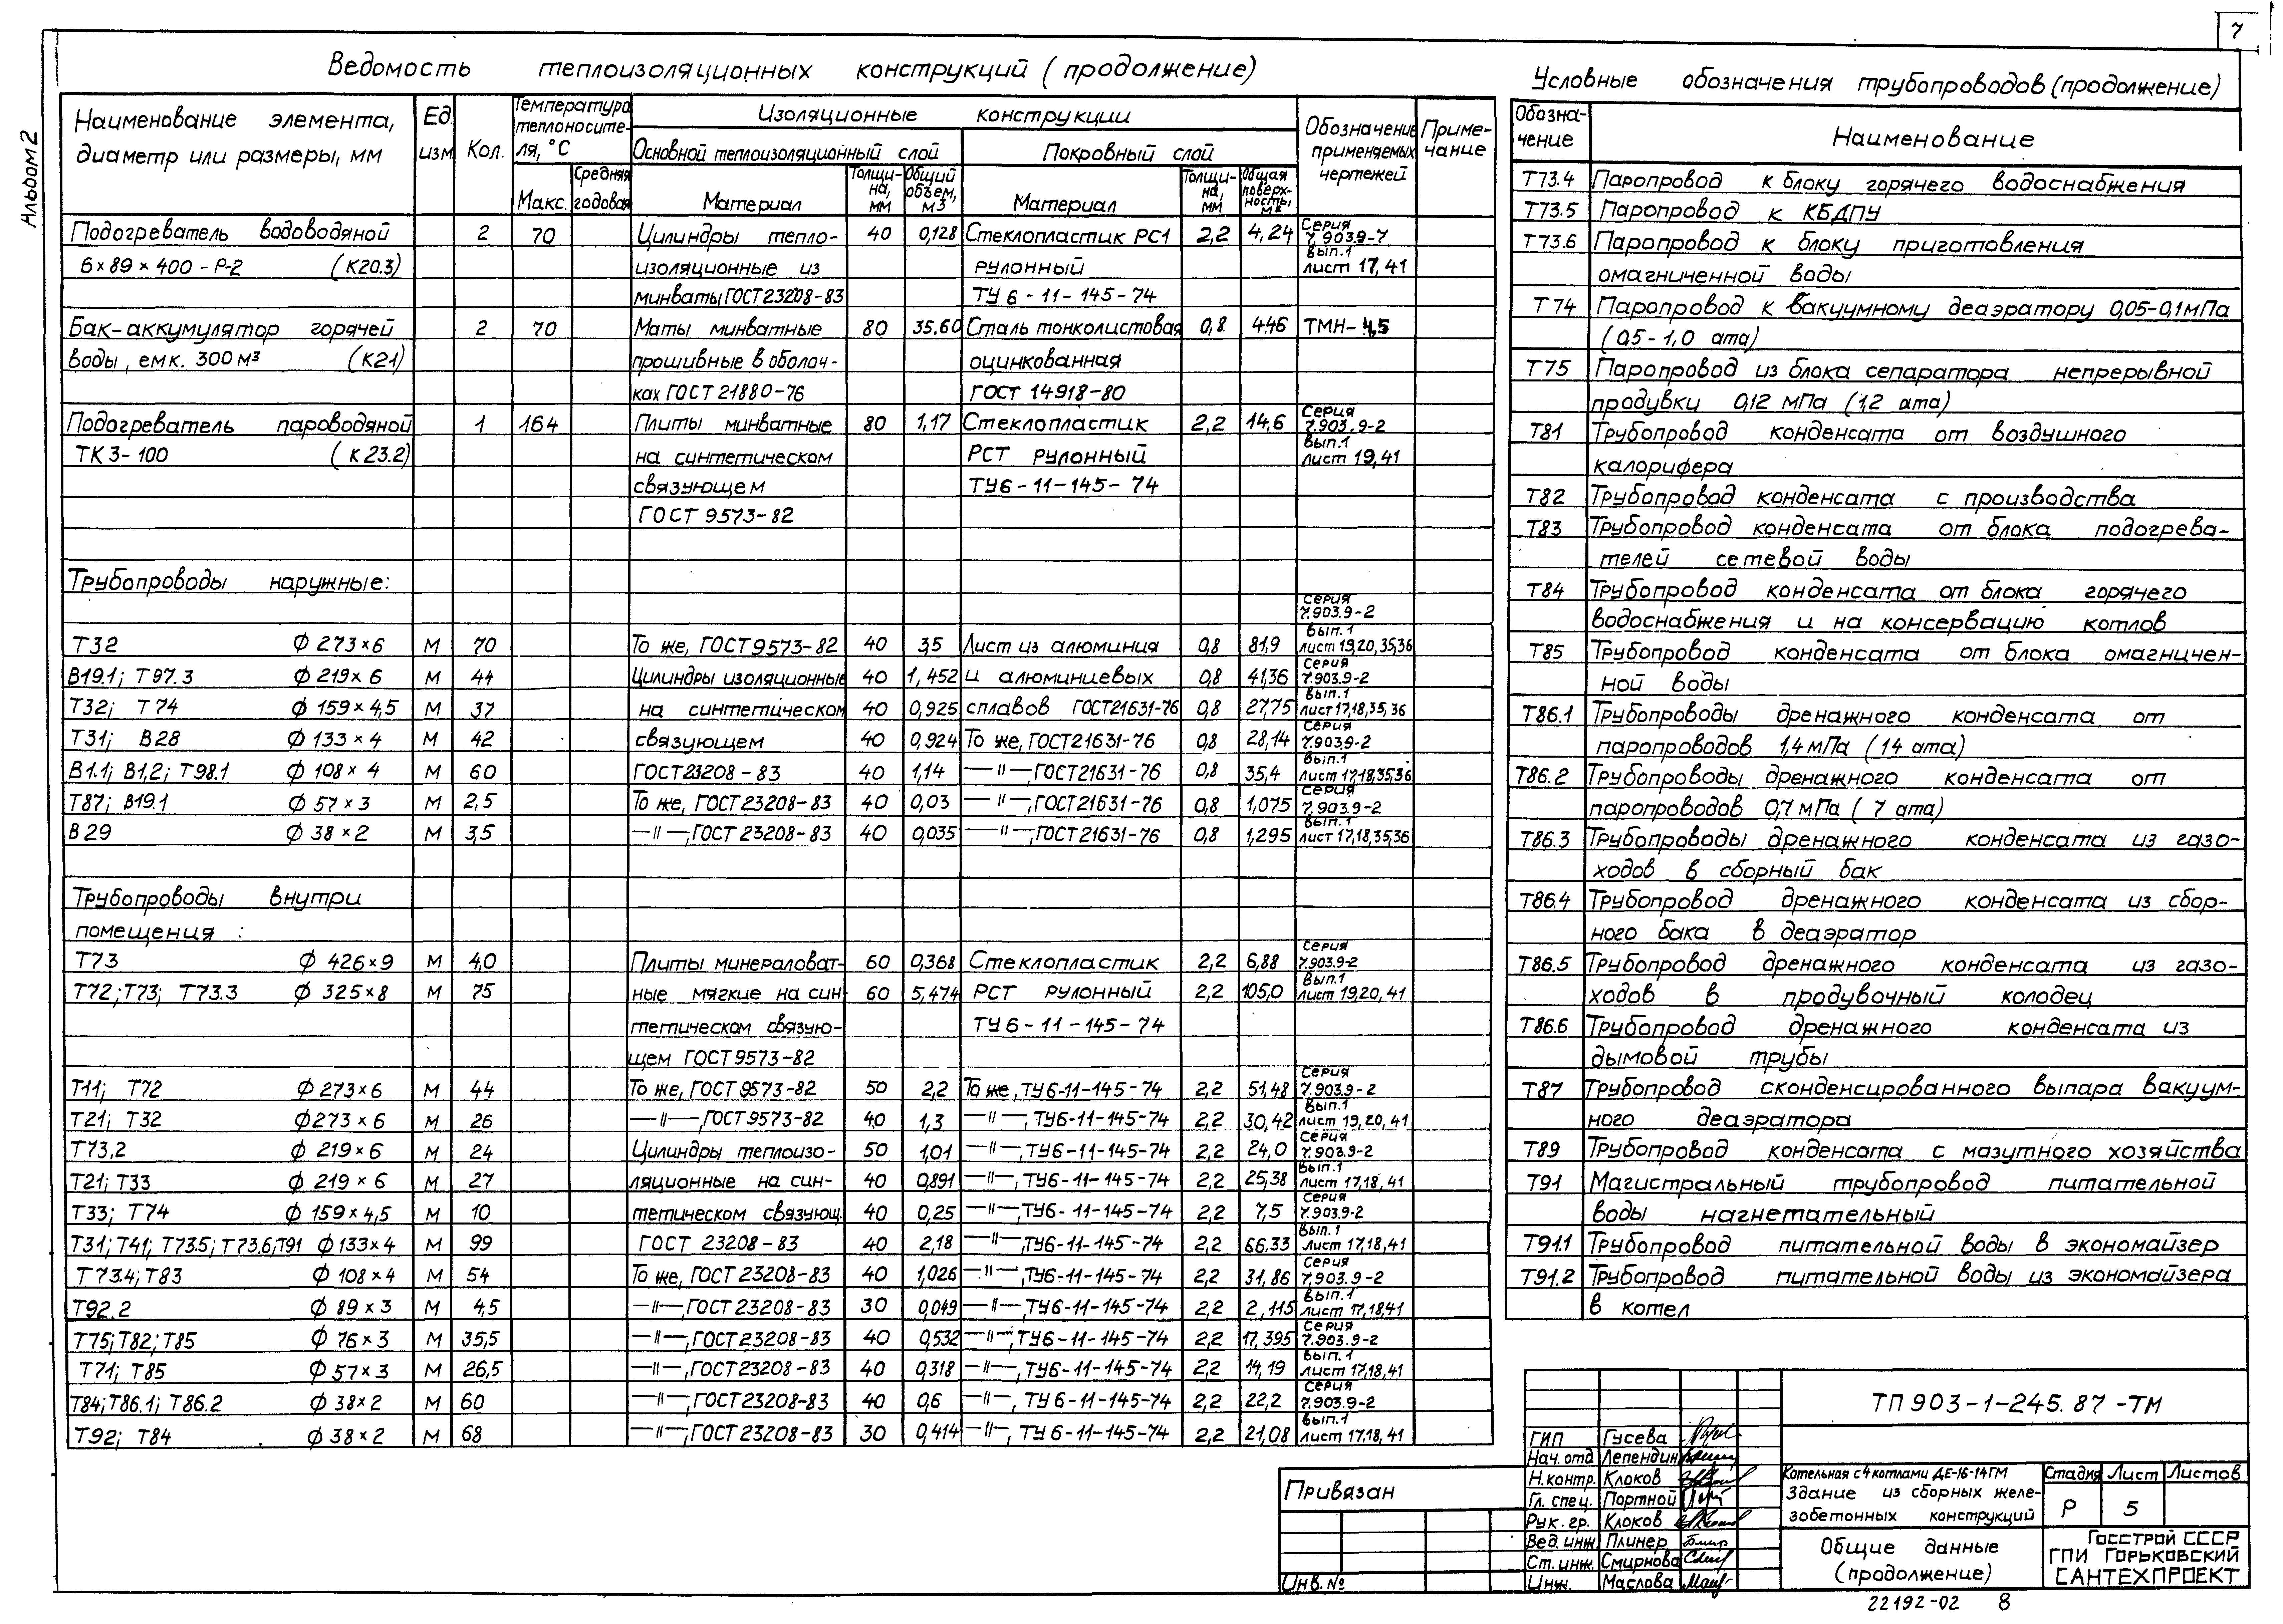 7
Альбом 2
Ведомость теплоизоляционных конструкций (продолжение)
Наименование элемента, диаметр или размеры, мм
Ед. изм
Кол.
Температура теплоносителя, °С
Макс.
Средняя годовая
Изоляционные конструкции
Основной теплоизоляционный слой
Покровный слой
Материал
Толщина, мм
Общий объем, м3
Материал
Толщина, мм
Общая поверхность, м2
Обозначение применяемых чертежей
Примечание
Подогреватель водоводяной 2 70 Цилиндры тепло- 40 0,128 Стеклопластик РС1 2,2 4,24 Серия 7.903.9-7
6×89×400-Р-2 (К20.3) изоляционные из рулонный вып.1 лист 17,41
минваты ГОСТ 23208-83 ТУ 6-11-145-74
Бак-аккумулятор горячей 2 70 Маты минватные 80 35.60 Сталь тонколистовая 0,8 446 ТМН-4,5
воды, емк. 300 м³ (К21) прошивные в оболоч- оцинкованная
ках ГОСТ 21880-76 ГОСТ 14918-80
Подогреватель пароводяной 1 164 Плиты минватные 80 1,17 Стеклопластик 2,2 14,6 Серия 7.903.9-2
ТКЗ-100 (К23.2) на синтетическом РСТ рулонный вып.1 лист 19,41
связующем ТУ6-11-145-74
ГОСТ 9573-82
Трубопроводы наружные:
Серия 7.903.9-2
Т32 ф 273×6 м 70 То же, ГОСТ 9573-82 40 3,5 Лист из алюминия 0,8 81,9 вып.1 лист 19,20,35,36
В19.1; Т97.3 ф 219×6 м 44 Цилиндры изоляционные 40 1,452 и алюминиевых 0,8 41,36 Серия 7.903.9-2
Т32; Т74 ф 159×4,5 м 37 на синтетическом 40 0,925 сплавов ГОСТ21631-76 0,8 27,75 вып.1 лист 17,18,35,36
Т31; В28 ф 133×4 м 42 связующем 40 0,924 То же, ГОСТ21631-76 0,8 28,14 Серия 7.903.9-2
В1.1; В1,2; Т98.1 ф 108×4 м 60 ГОСТ23208-83 40 1,14 —"—, ГОСТ21631-76 0,8 35,4 вып.1 лист 17,18,35,36
Т87; В19.1 ф 57×3 м 2,5 То же, ГОСТ 23208-83 40 0,03 —"—, ГОСТ21631-76 0,8 1,075 Серия 7.903.9-2
В29 ф 38×2 м 3,5 —"—, ГОСТ 23208-83 40 0,035 —"—, ГОСТ21631-76 0,8 1,295 вып.1 лист 17,18,35,36
Трубопроводы внутри
помещения:
Т73 ф 426×9 м 4,0 Плиты минераловат- 60 0,368 Стеклопластик 2,2 6,88 Серия 7.903.9-2
Т72; Т73; Т73.3 ф 325×8 м 75 ные мягкие на син- 60 5,474 РСТ рулонный 2,2 105,0 Вып.1 лист 19,20,41
тетическом связую- ТУ6-11-145-74
щем ГОСТ 9573-82
Т11; Т72 ф 273×6 м 44 То же, ГОСТ 9573-82 50 2,2 То же, ТУ6-11-145-74 2,2 51,48 Серия 7.903.9-2
Т21; Т32 ф 273×6 м 26 —"—, ГОСТ9573-82 40 1,3 —"—, ТУ6-11-145-74 2,2 30,42 Вып.1 лист 19,20,41
Т73,2 ф 219×6 м 24 Цилиндры теплоизо- 50 1,01 —"—, ТУ6-11-145-74 2,2 24,0 Серия 7.903.9-2
Т21; Т33 ф 219×6 м 27 ляционные на син- 40 0,891 —"—, ТУ6-11-145-74 2,2 25,38 Вып.1 лист 17,18,41
Т33; Т74 ф 159×4,5 м 10 тетическом связующ. 40 0,25 —"—, ТУ6-11-145-74 2,2 7,5 Серия 7.903.9-2
Т31; Т41; Т73.5; Т73.6; Т91 ф 133×4 м 99 ГОСТ 23208-83 40 2,18 —"—, ТУ6-11-145-74 2,2 66,33 Вып.1 лист 17,18,41
Т73.4; Т83 ф 108×4 м 54 То же, ГОСТ 23208-83 40 1,026 —"—, ТУ6-11-145-74 2,2 31,86 Серия 7.903.9-2
Т92.2 ф 89×3 м 4,5 —"—, ГОСТ 23208-83 30 0,049 —"—, ТУ6-11-145-74 2,2 2,115 Вып.1 лист 17,18,41
Т75; Т82; Т85 ф 76×3 м 35,5 —"—, ГОСТ 23208-83 40 0,532 —"—, ТУ6-11-145-74 2,2 17,395 Серия 7.903.9-2
Т71; Т85 ф 57×3 м 26,5 —"—, ГОСТ 23208-83 40 0,318 —"—, ТУ6-11-145-74 2,2 14,19 Вып.1 лист 17,18,41
Т84; Т86.1; Т86.2 ф 38×2 м 60 —"—, ГОСТ 23208-83 40 0,6 —"—, ТУ 6-11-145-74 2,2 22,2 Серия 7.903.9-2
Т92; Т84 ф 38×2 м 68 —"—, ГОСТ 23208-83 30 0,414 —"—, ТУ 6-11-145-74 2,2 21,08 Вып.1 лист 17,18,41
Условные обозначения трубопроводов (продолжение)
Обозначение Наименование
Т73.4 Паропровод к блоку горячего водоснабжения
Т73.5 Паропровод к КБДПУ
Т73.6 Паропровод к блоку приготовления
омагниченной воды
Т74 Паропровод к вакуумному деаэратору 0,05-0,1мПа
(0,5-1,0 ата)
Т75 Паропровод из блока сепаратора непрерывной
продувки 0,12 мПа (1,2 ата)
Т81 Трубопровод конденсата от воздушного
калорифера
Т82 Трубопровод конденсата с производства
Т83 Трубопровод конденсата от блока подогрева-
телей сетевой воды
Т84 Трубопровод конденсата от блока горячего
водоснабжения и на консервацию котлов
Т85 Трубопровод конденсата от блока омагничен-
ной воды
Т86.1 Трубопроводы дренажного конденсата от
паропроводов 1,4 мПа (14 ата)
Т86.2 Трубопроводы дренажного конденсата от
паропроводов 0,7 мПа (7 ата)
Т86.3 Трубопроводы дренажного конденсата из газо-
ходов в сборный бак
Т86.4 Трубопровод дренажного конденсата из сбор-
ного бака в деаэратор
Т86.5 Трубопровод дренажного конденсата из газо-
ходов в продувочный колодец
Т86.6 Трубопровод дренажного конденсата из
дымовой трубы
Т87 Трубопровод сконденсированного выпара вакуум-
ного деаэратора
Т89 Трубопровод конденсата с мазутного хозяйства
Т91 Магистральный трубопровод питательной
воды нагнетательный
Т91.1 Трубопровод питательной воды в экономайзер
Т91.2 Трубопровод питательной воды из экономайзера
в котел
Привязан
Инв. №
ТП 903-1-245.87 -ТМ
ГИП Гусева
Нач. отд Лепендин
Н.контр. Клоков
Гл. спец. Портной
Рук. гр. Клоков
Вед. инж. Плинер
Ст. инж. Смирнова
Инж. Маслова
Котельная с 4 котлами ДЕ-16-14ГМ
Здание из сборных желе-
зобетонных конструкций
Стадия Лист Листов
Р 5
Общие данные
(продолжение)
Госстрой СССР
ГПИ Горьковский
САНТЕХПРОЕКТ
22192-02 8